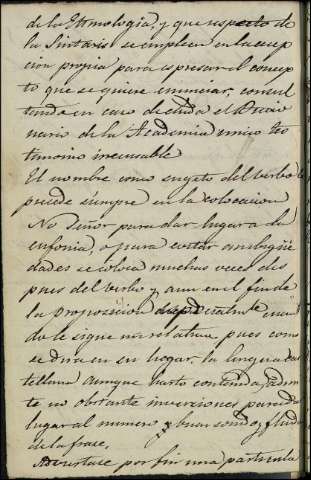 de la Etimologia, y que respecto de
la Sintaxis se empleen en la accep
cion propia para espresar el concep
to que se quiere enunciar, consul
tando en caso de duda el Diccio
nario de la Academia unico tes
timonio irrecusable
El nombre como sugeto del verbo le
precede siempre en la colocacion
No Señor para dar lugar a la
eufonia, o para evitar ambigüe
dades se coloca muchas veces des
pues del verbo y aun en el fin de
la proposicion cuan
do le sigue un relativo, pues como
se dira en su lugar, la lengua cas
tellana aunque harto contenida, admi
te no obstante inversiones para dar
lugar al numero y buen sonido y fluidez
de la frase.
Adviertase por fin una particula